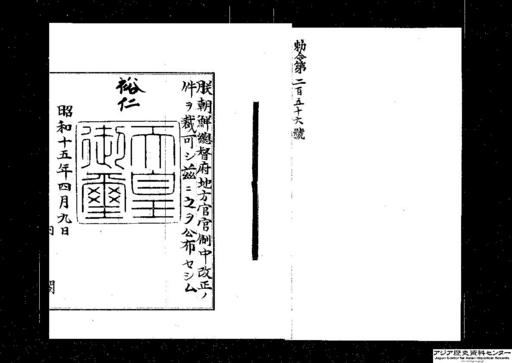 勅令第二百五十六號
朕朝鮮總督府地方官官制中改正ノ
件ヲ裁可シ茲ニ之ヲ公布セシム
裕仁
天皇御璽
昭和十五年四月九日
内閣
アジア歴史資料センター
Japan Center for Asian Historical Records